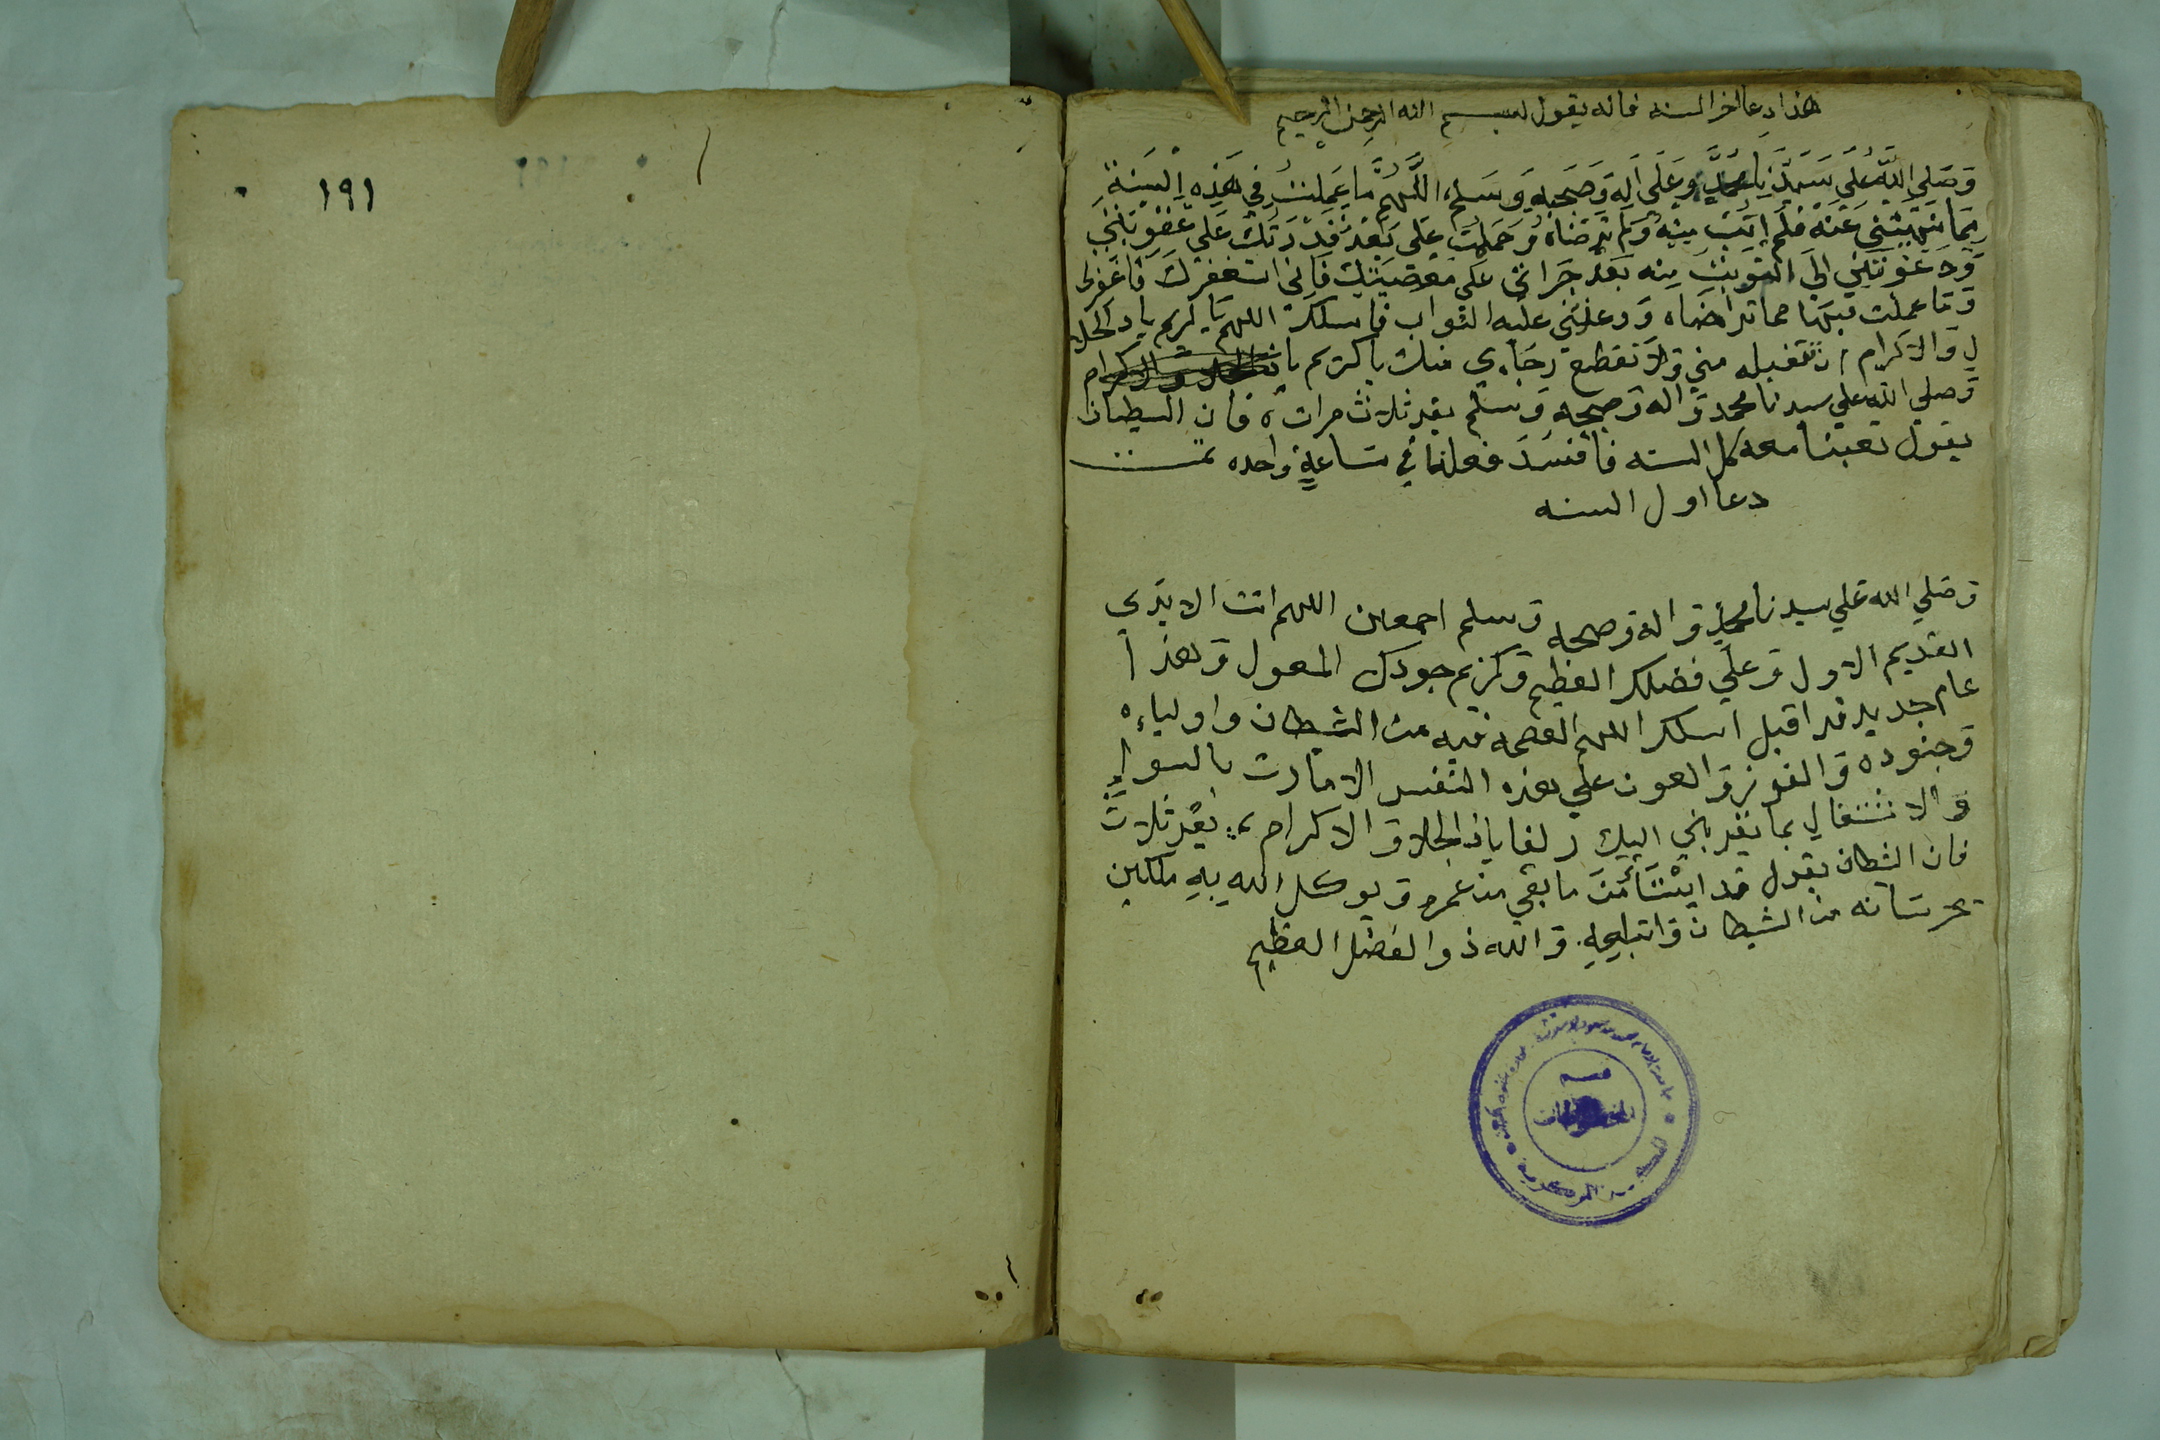 هذا دعا اخر السنه فانه يقول بسم الله الرحمن الرحيم
وَصَلي اللهُ عَلَي سَيِّدِنَا مُحَمَّدٍ وَعَلَي اَلِهِ وَصَحبِهِ وَسَلم اللَّهُمَّ مَا عَمِلتُ فِي هَذِهِ السَنَةِ
مِمَا نَهَيْتَنِي عَنْهُ فَلَم اتُبْ مِنهُ وَلَم تَرضَاهُ وَحَملتَ عَلى بَعْدَ قُدْرَتِكَ عَلَي عُقُوبَتِي
وَدعَوْتَنِي اِلَي التَوبَتِ مِنه بَعْدَ جَرَاتى عَلَى مَعْصِيَتِكَ فَانى استغفرك فاغفرلى
وَمَا عملت فيهَا مما ترَاضَاه وَوعدتَنِي عليه الثواب فاسلك اللهم يَا كريم يا ذالجلا
ل وَالاكرام ان تتقبله مني وَلاَ تقطع رجَاءى منك يا كريم يا
وَصلي الله علي سيدنا محمد وَاله وَصحبه وَسلم يقرَ ثلاث مرات ه فان الشيطان
يقول تعبنا معه كل السنه فافسَدَ فعلنا في سَاعةٍ واحده تمت
دعا اول السنه
وَصَلي الله عَلي سيدنا محمدٍ وَاله وَصحبه وَسلم اجمعين اللهم انت الابدَى
القديم الاول وَعلَي فضلك العظيم وَكريم جودك المعول وَهذا
عام جديد قد اقبل اسلك اللهم العصمه فيه من الشيطان واولياءِه
وَجنوده وَالفوز وَالعون علي هذه النفس الامارت بالسوا
وَالاشتغال بما يقربني اليك زلفا ياذالجلا وَالاكرام يقرَ ثلاث
فان الشيطان يقول قد ايْسْتَأمَنَ ما بقي من عمره وَيوكل الله بِهِ ملكين
يحرسَانه من الشيطان وَاتباعِهِ وَالله ذو الفضل العظيم
قسم
المخطوطات
١٩١
١